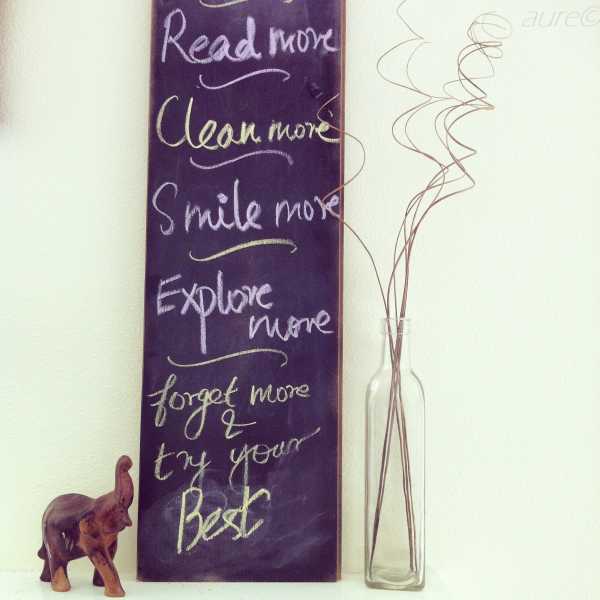 aure©
Read more
Clean more
Smile more
Explore
more
forget more
&
try your
Best